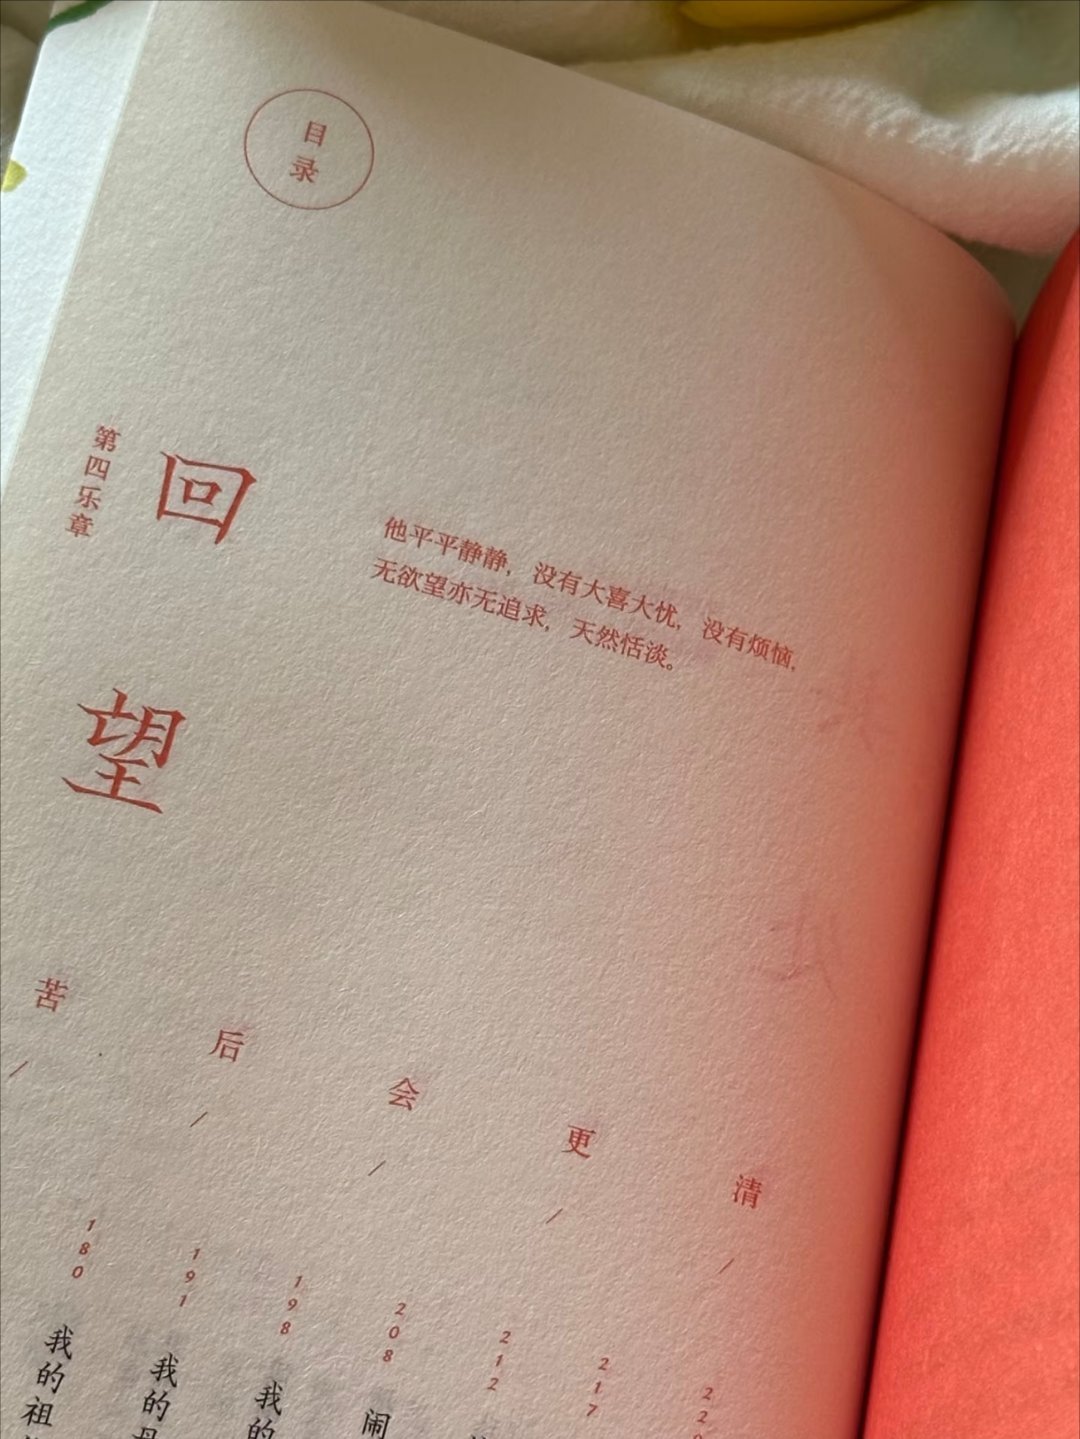 目录
第四乐章
回望
他平平静静，没有大喜大忧，没有烦恼，
无欲望亦无追求，天然恬淡。
苦 / 后 / 会 / 更 / 清 /
180 我的祖
191 我的母
198 我的
208 闹
212
217